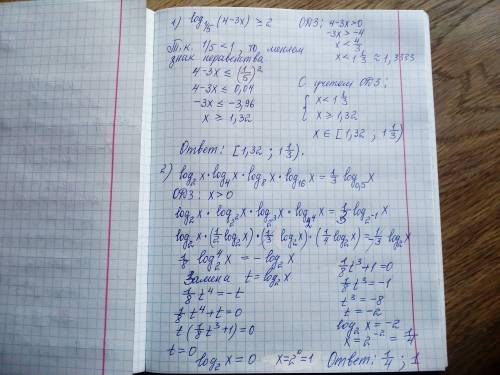 1) log₁/₅ (4-3x) ≥ 2
ОДЗ: 4-3x>0
-3x>-4
x < 4/3
x < 1 1/3 ≈ 1,3333
Т.к. 1/5 < 1, то меняем
знак неравенства
4-3x ≤ (1/5)²
4-3x ≤ 0,04
-3x ≤ -3,96
x ≥ 1,32
С учетом ОДЗ:
{ x < 1 1/3
x ≥ 1,32
x ∈ [1,32 ; 1 1/3)
Ответ: [1,32 ; 1 1/3).
2) log₂x · log₄x · log₈x · log₁₆x = 1/3 log₀,₅ x
ОДЗ: x>0
log₂x · log₂²x · log₂³x · log₂⁴x = 1/3 · log₂₋₁ x
log₂x · (1/2 log₂x) · (1/3 log₂x) · (1/4 log₂x) = -1/3 log₂x
1/8 log₂⁴x = -log₂x
Замена t = log₂x
1/8 t⁴ = -t
1/8 t⁴ + t = 0
t (1/8 t³ + 1) = 0
t = 0
log₂x = 0 x = 2⁰ = 1
1/8 t³ + 1 = 0
1/8 t³ = -1
t³ = -8
t = -2
log₂x = -2
x = 2⁻² = 1/4
Ответ: 1/4 ; 1